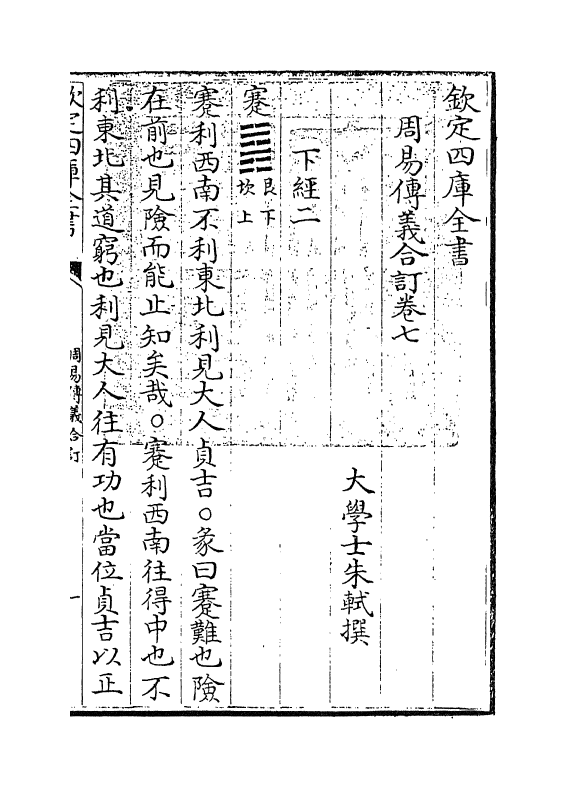 欽定四庫全書
周易傳義合訂卷七
大學士朱軾撰
下經二
蹇 艮下 坎上
蹇利西南不利東北利見大人貞吉○彖曰蹇難也險
在前也見險而能止知矣哉○蹇利西南往得中也不
利東北其道窮也利見大人往有功也當位貞吉以正
欽定四庫全書
周易傳義合訂
一